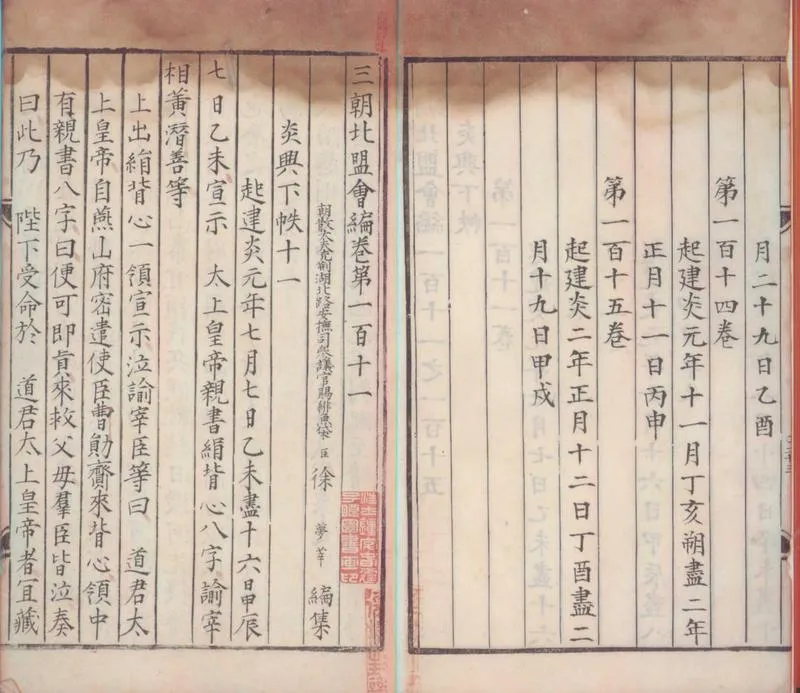 月二十九日乙酉
第一百十四卷
起建炎元年十一月丁亥朔盡二年
正月十一日丙申
第一百十五卷
起建炎二年正月十二日丁酉盡二
月十九日甲戌
三朝北盟會編卷第一百十一
朝散大夫充荊湖北路安撫司叅議官賜緋魚袋臣徐夢莘編集
炎興下帙十一
起建炎元年七月七日乙未盡十六日甲辰
七日乙未宣示 太上皇帝親書絹背心八字諭宰
相黃潛善等
上出絹背心一領宣示泣諭宰臣等曰 道君太
上皇帝自燕山府密遣使臣曹勛齎來背心領中
有親書八字曰便可即真來救父母羣臣皆泣奏
曰此乃 陛下受命於 道君太上皇帝者宜藏